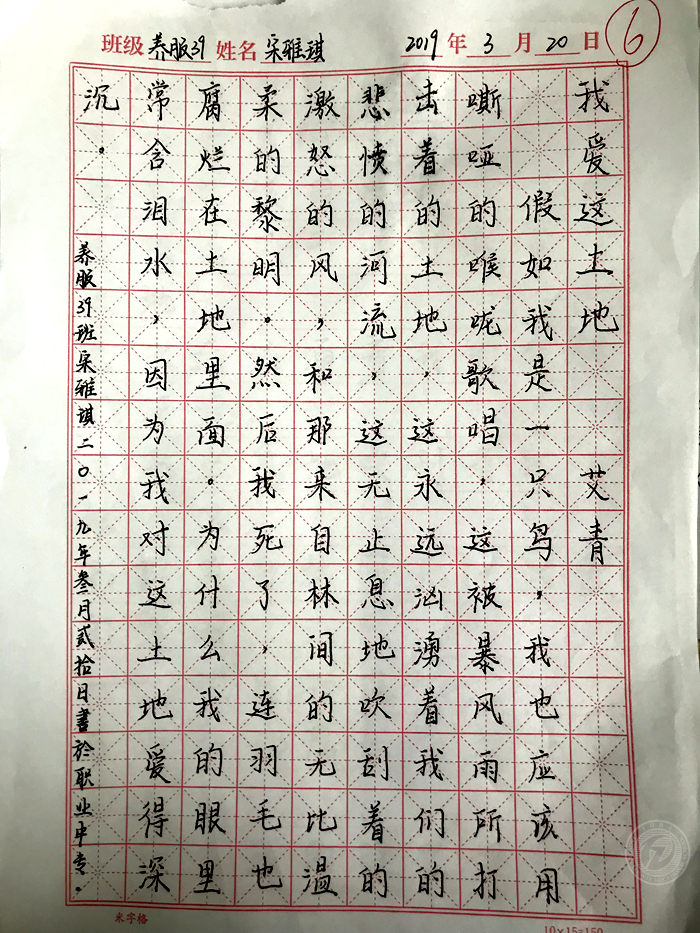 班级 养服39 姓名 宋雅琪 2019 年 3 月 20 日 6
我爱这土地 艾青
假如我是一只鸟，我也应该用
嘶哑的喉咙歌唱，这被暴风雨所打
击着的土地，这永远汹涌着我们的
悲愤的河流，这无止息地吹刮着的
激怒的风，和那来自林间的无比温
柔的黎明。然后我死了，连羽毛也
腐烂在土地里面。为什么我的眼里
常含泪水，因为我对这土地爱得深
沉。
养服39班宋雅琪二〇一九年叁月贰拾日書於职业中专。
米字格
10×15=150